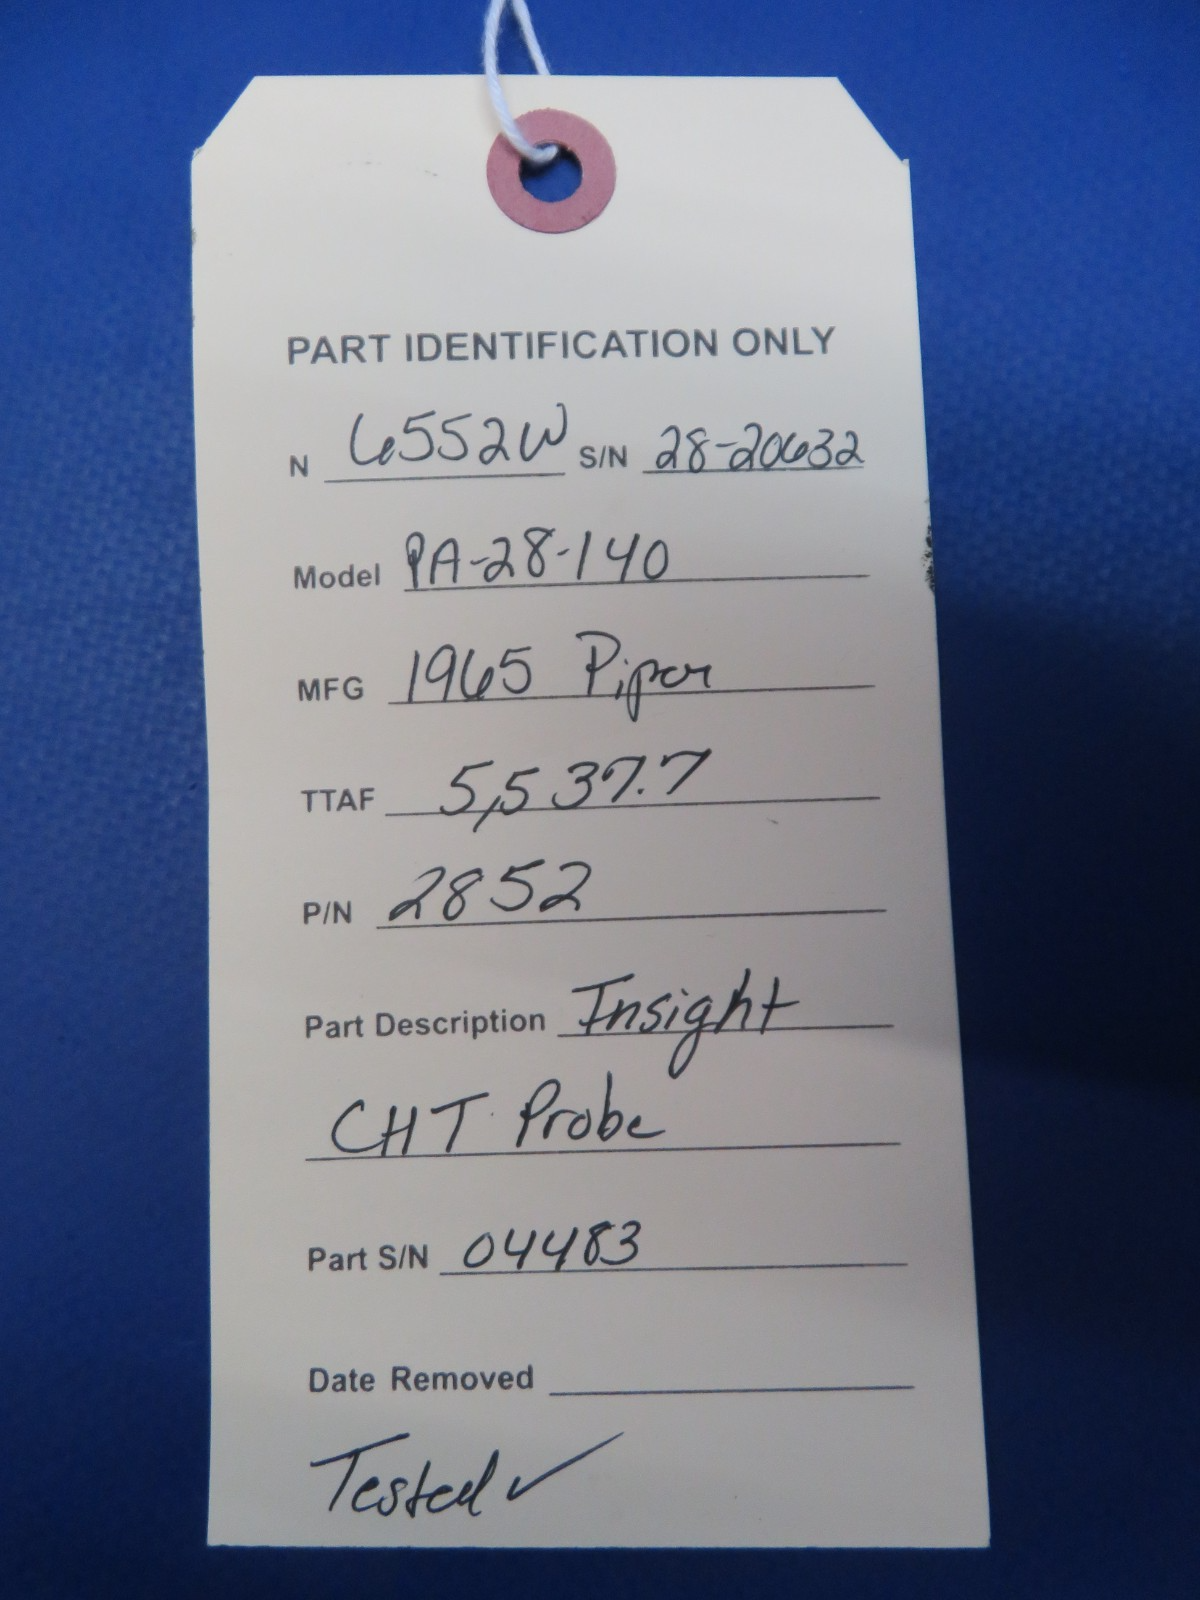 PART IDENTIFICATION ONLY
N 6552W S/N 28-20632
Model PA-28-140
MFG 1965 Piper
TTAF 5,537.7
P/N 2852
Part Description Insight
CHT Probe
Part S/N 04483
Date Removed
Tested ✓